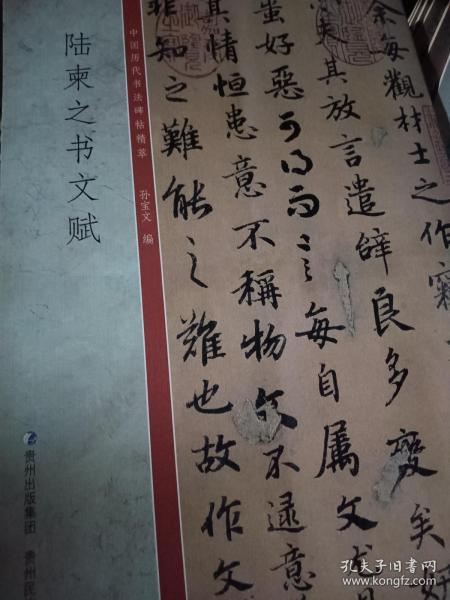 陆柬之书文赋
中国历代书法碑帖精萃
孙宝文 编
贵州出版集团 贵州民
余每觀材士之作竊
其放言遣辭良多變矣妍
蚩好惡可得而言每自屬文尤見
其情恒患意不稱物文不逮意
非知之難能之難也故作文
孔夫子旧书网
www.kongfz.com